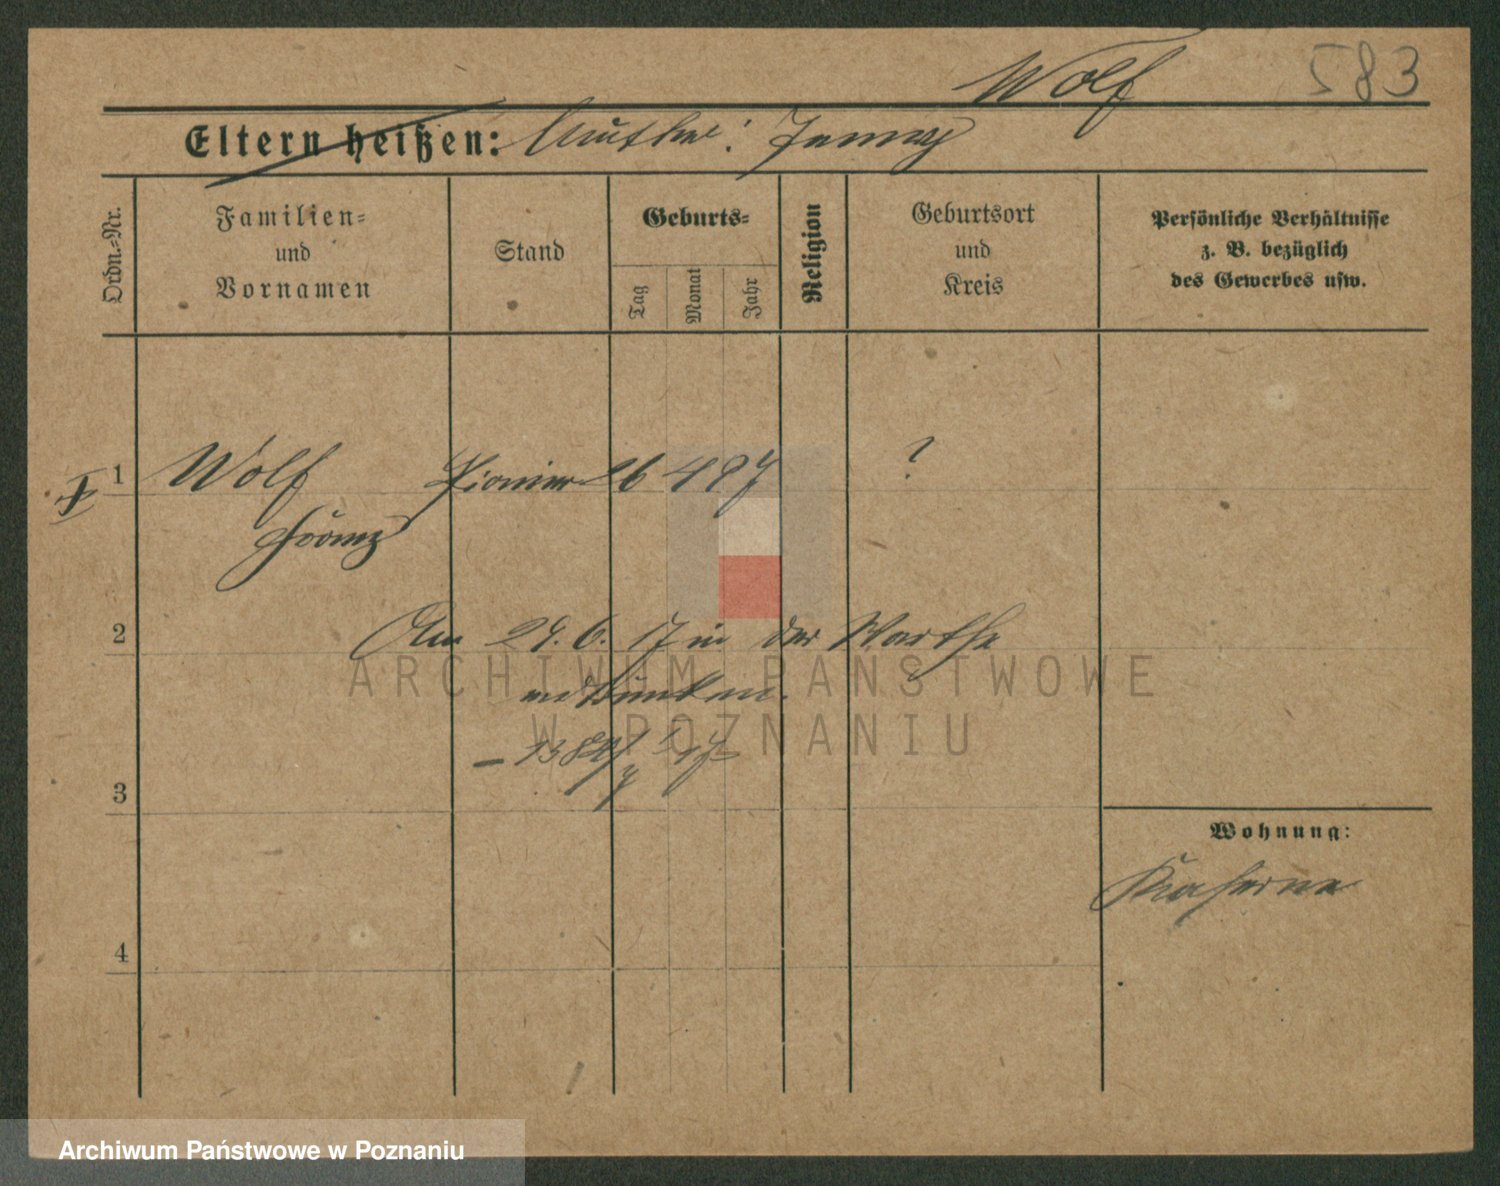 Wolf 583
Eltern heißen: Mutter: Jenny
Ordn.-Nr.
Familien-
und
Vornamen
Stand
Geburts-
Tag
Monat
Jahr
Religion
Geburtsort
und
Kreis
Persönliche Verhältnisse
z. B. bezüglich
des Gewerbes usw.
1 Wolf Pionier 26 4 97 ?
Franz
2
Am 29. 6. 17 in der Warthe
ertrunken.
ARCHIWUM PAŃSTWOWE
W POZNANIU
3
Wohnung:
Kaserne
4
Archiwum Państwowe w Poznaniu